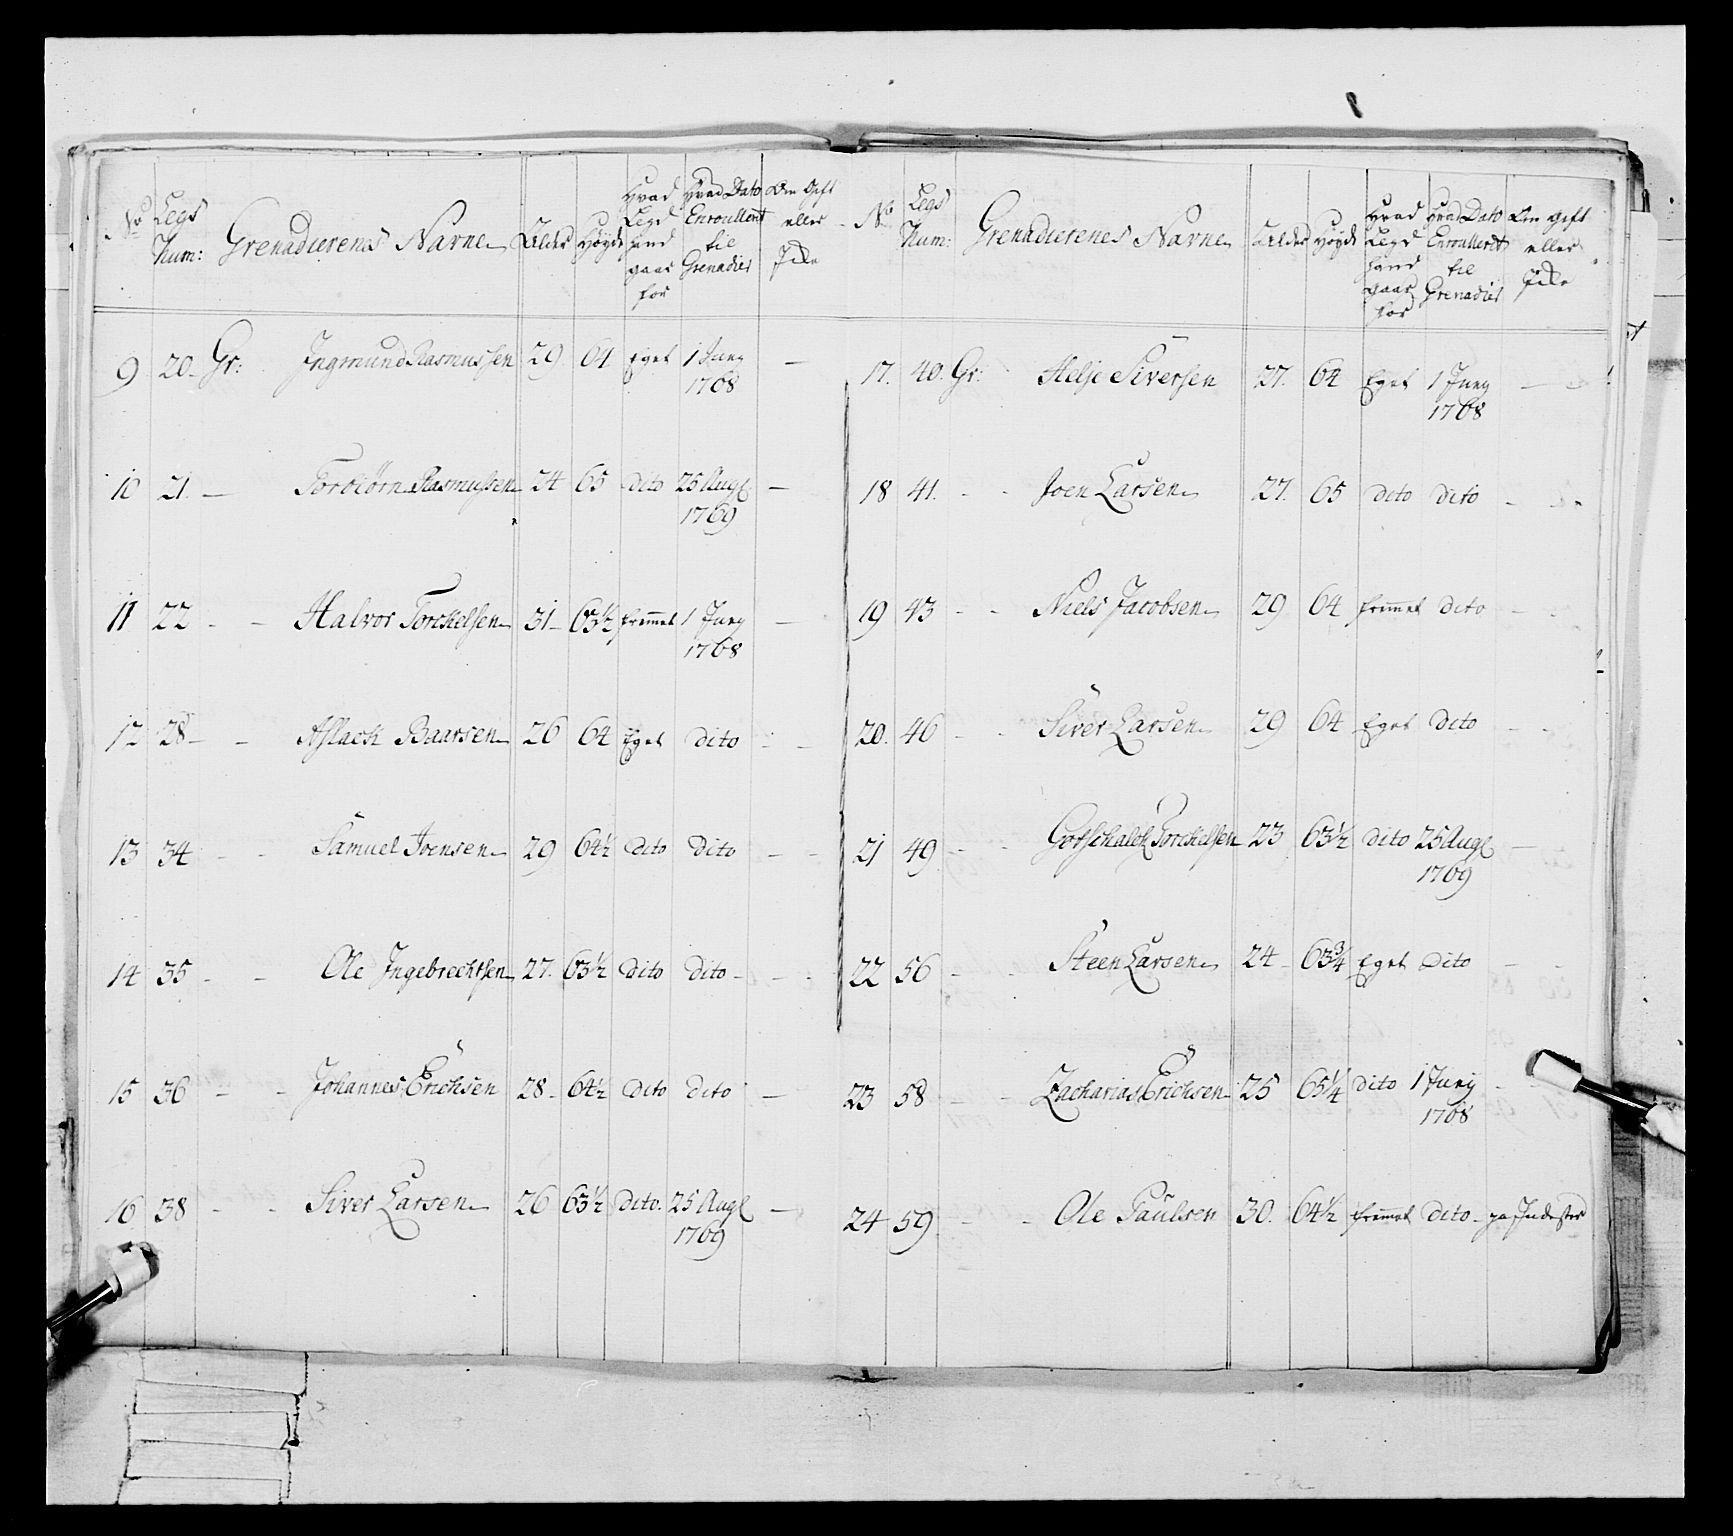 No Legs Num: Grenadierenes Navne Alder Höyde Hvad Legd hand gaar for Hvad Dato Enroullert til Grenadier Om Gift eller
9 20 Gr: Ingmund Rasmussen 29 64 Eget 1 Juny
1768
10 21. — Torbiörn Rasmussen 24 65 dito 25 Augl —
1769
11 22 - - Halvor Torckelsen 31 63½ fremmet 1 Juny —
1768
12 28 - - Aslack Baarsen 26 64 Eget dito - -
13 34 - - Samuel Joensen 29 64½ dito dito - -
14 35 - - Ole Ingebrechtsen 27. 63½ dito dito - -
15 36 - - Johannes Erichsen 28 - 64½ dito dito —
16 38 - - Siver Larsen 26 63½ dito. 25 Augl —
1769
No Legs Num: Grenadierenes Navne Alder Höyde Hvad Legd hand gaar for Hvad Dato Enroullert til Grenadier Om Gift eller
17. 40. Gr: Helje Siversen 27. 64 Eget 1 Juny —
1768
18 41. - - Joen Larsen 27. 65 dito dito - -
19 43 - - Niels Jacobsen 29 64 fremmet dito - -
20. 46 - - Siver Larsen 29 64 Eget dito - -
21 49 - - Gotschalck Torckelsen 23 63½ dito 25 Augl —
1769
22 56 - - Steen Larsen 24 63¾ Eget dito - -
23 58 - - Zacharias Erichsen 25 65¼ dito 1 Juny -
1768
24 59 - - Ole Paulsen 30. 64½ fremmet dito -